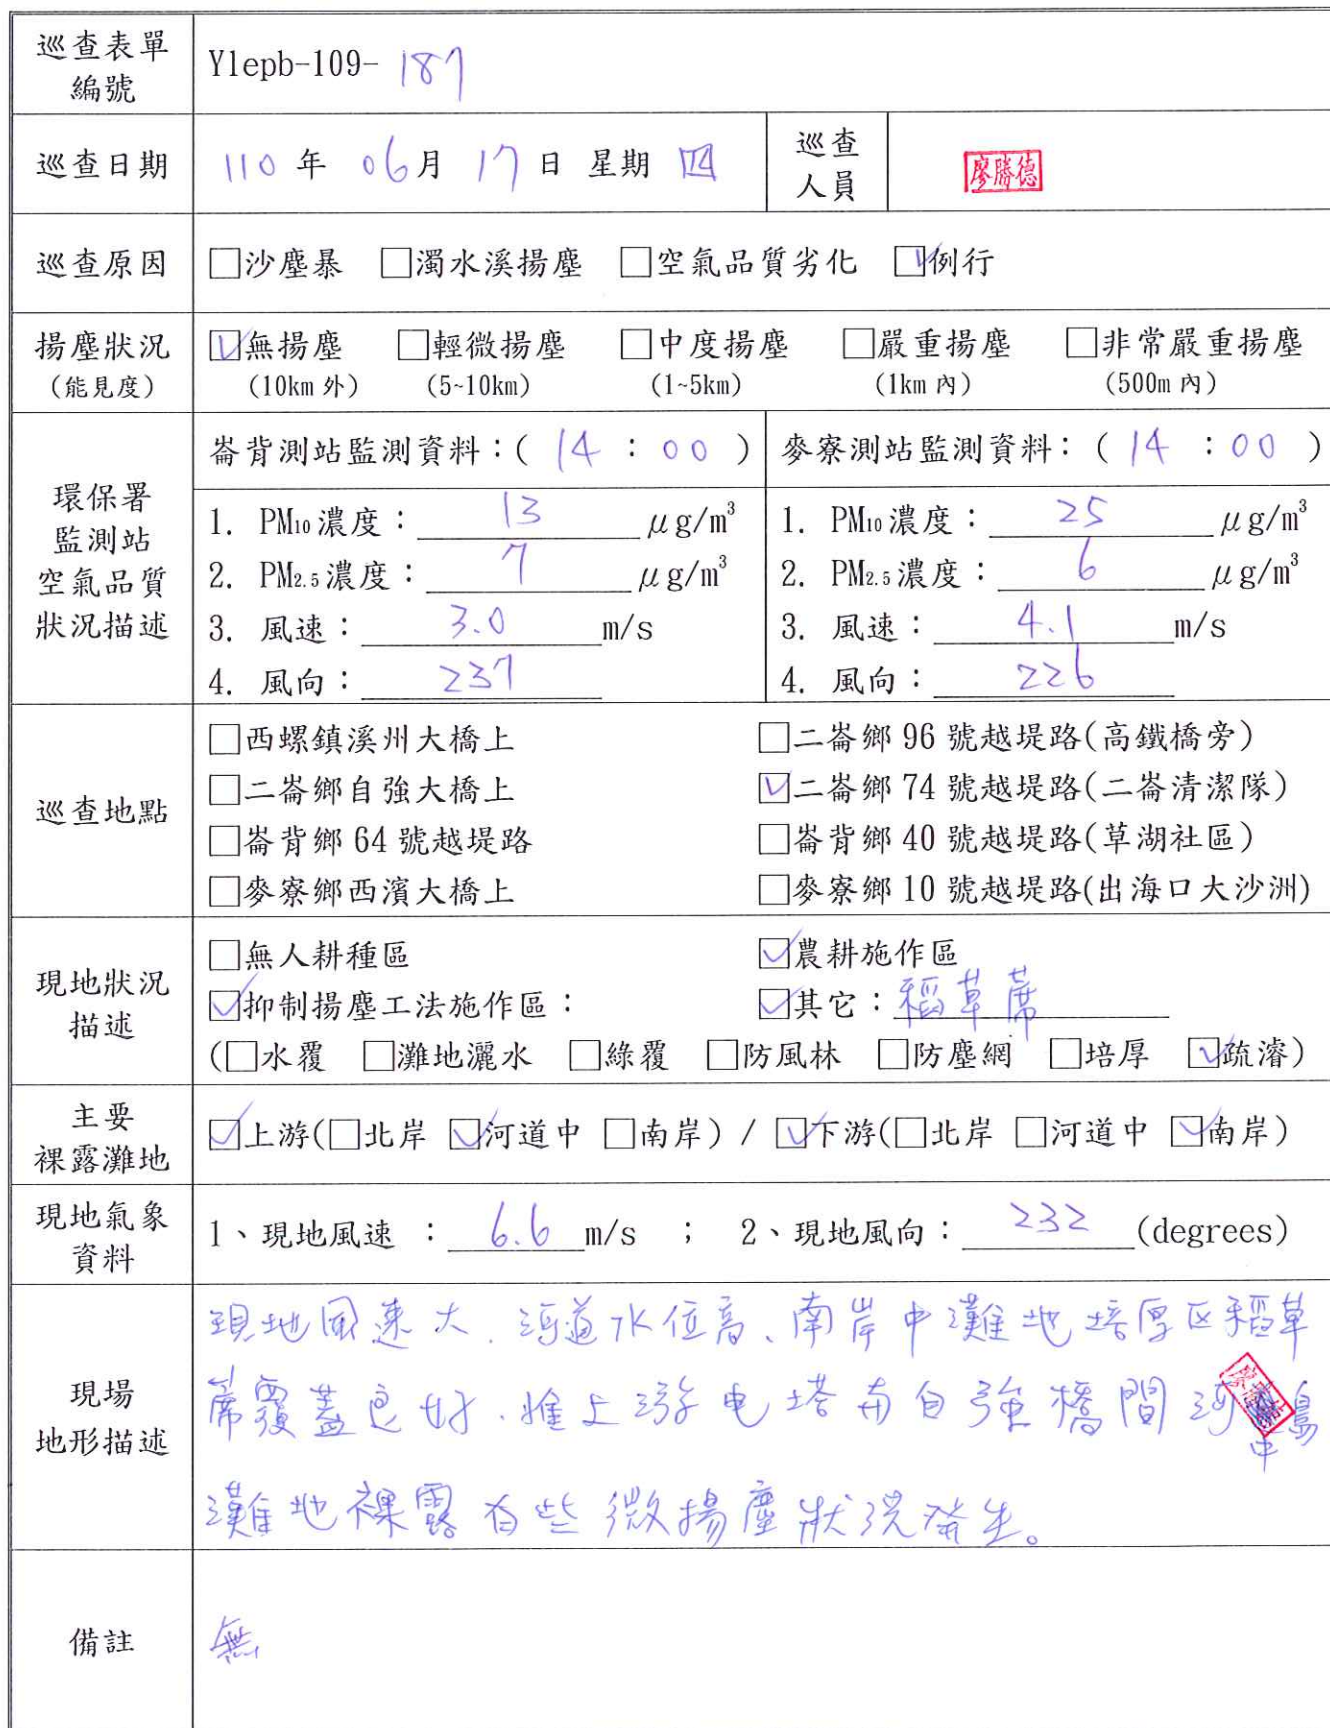 巡查表單
編號
Ylepb-109- 187
巡查日期
110 年 06 月 17 日 星期 四
巡查
人員
廖勝德
巡查原因
□沙塵暴 □濁水溪揚塵 □空氣品質劣化 ☑例行
揚塵狀況
(能見度)
☑無揚塵 □輕微揚塵 □中度揚塵 □嚴重揚塵 □非常嚴重揚塵
(10km 外) (5~10km) (1~5km) (1km 內) (500m 內)
環保署
監測站
空氣品質
狀況描述
崙背測站監測資料：( 14 : 00 )
1. PM10 濃度： 13 μg/m³
2. PM2.5 濃度： 7 μg/m³
3. 風速： 3.0 m/s
4. 風向： 237
麥寮測站監測資料：( 14 : 00 )
1. PM10 濃度： 25 μg/m³
2. PM2.5 濃度： 6 μg/m³
3. 風速： 4.1 m/s
4. 風向： 226
巡查地點
□西螺鎮溪州大橋上 □二崙鄉 96 號越堤路(高鐵橋旁)
□二崙鄉自強大橋上 ☑二崙鄉 74 號越堤路(二崙清潔隊)
□崙背鄉 64 號越堤路 □崙背鄉 40 號越堤路(草湖社區)
□麥寮鄉西濱大橋上 □麥寮鄉 10 號越堤路(出海口大沙洲)
現地狀況
描述
□無人耕種區 ☑農耕施作區
☑抑制揚塵工法施作區： ☑其它：稻草蓆
(□水覆 □灘地灑水 □綠覆 □防風林 □防塵網 □培厚 ☑疏濬)
主要
裸露灘地
☑上游(□北岸 ☑河道中 □南岸) / ☑下游(□北岸 □河道中 ☑南岸)
現地氣象
資料
1、現地風速 ： 6.6 m/s ； 2、現地風向： 232 (degrees)
現場
地形描述
現地風速大、河道水位高、南岸中灘地培厚区稻草
蓆覆蓋良好、惟上游电塔南自強橋間河中島
灘地裸露有些微揚塵狀況發生。
備註
無